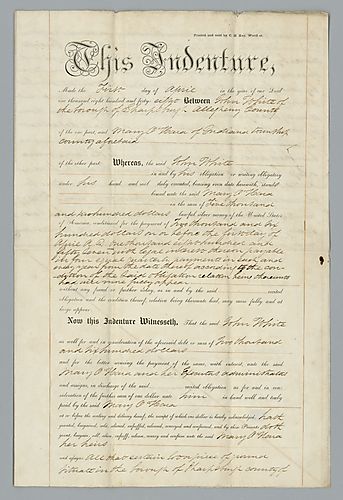 This Indenture,
Made the First day of April in the year of our Lord
one thousand eight hundred and forty- Between John White of
the borough of Sharpsburg Allegheny County
of the one part, and Mary O'Hara of Indiana township
county aforesaid
of the other part. Whereas, the said John White
in and by his obligation or writing obligatory
under his hand and seal duly executed, bearing even date herewith, stand
bound unto the said Mary O'Hara
in the sum of thousand
and hundred dollars lawful silver money of the United States
of America, conditioned for the payment of Two thousand and six
hundred dollars on or before the first day of
April A D one thousand eight hundred and
fifty with interest thereon payable
in four equal quarterly payments in each and
every year from the date thereof according to the con-
dition of the said obligation
had will more fully appear
without any fraud or further delay, as in and by the said recited
obligation and the condition thereof, relation being thereunto had, may more fully and at
large appear.
Now this Indenture Witnesseth, That the said John White
as well for and in consideration of the aforesaid debt or sum of Two thousand
and six hundred dollars
and for the better securing the payment of the same, with interest, unto the said
Mary O'Hara and her Executors administrators
and assigns, in discharge of the said recited obligation, as for and in con-
sideration of the further sum of one dollar unto him in hand well and truly
paid by the said Mary O'Hara
at or before the sealing and delivery hereof, the receipt of which one dollar is hereby acknowledged, hath
granted, bargained, sold, aliened, enfeoffed, released, conveyed and confirmed, and by these Presents doth
grant, bargain, sell, alien, enfeoff, release, convey and confirm unto the said Mary O'Hara
her heirs
and assigns All that certain piece of ground
situate in the borough of Sharpsburg county of